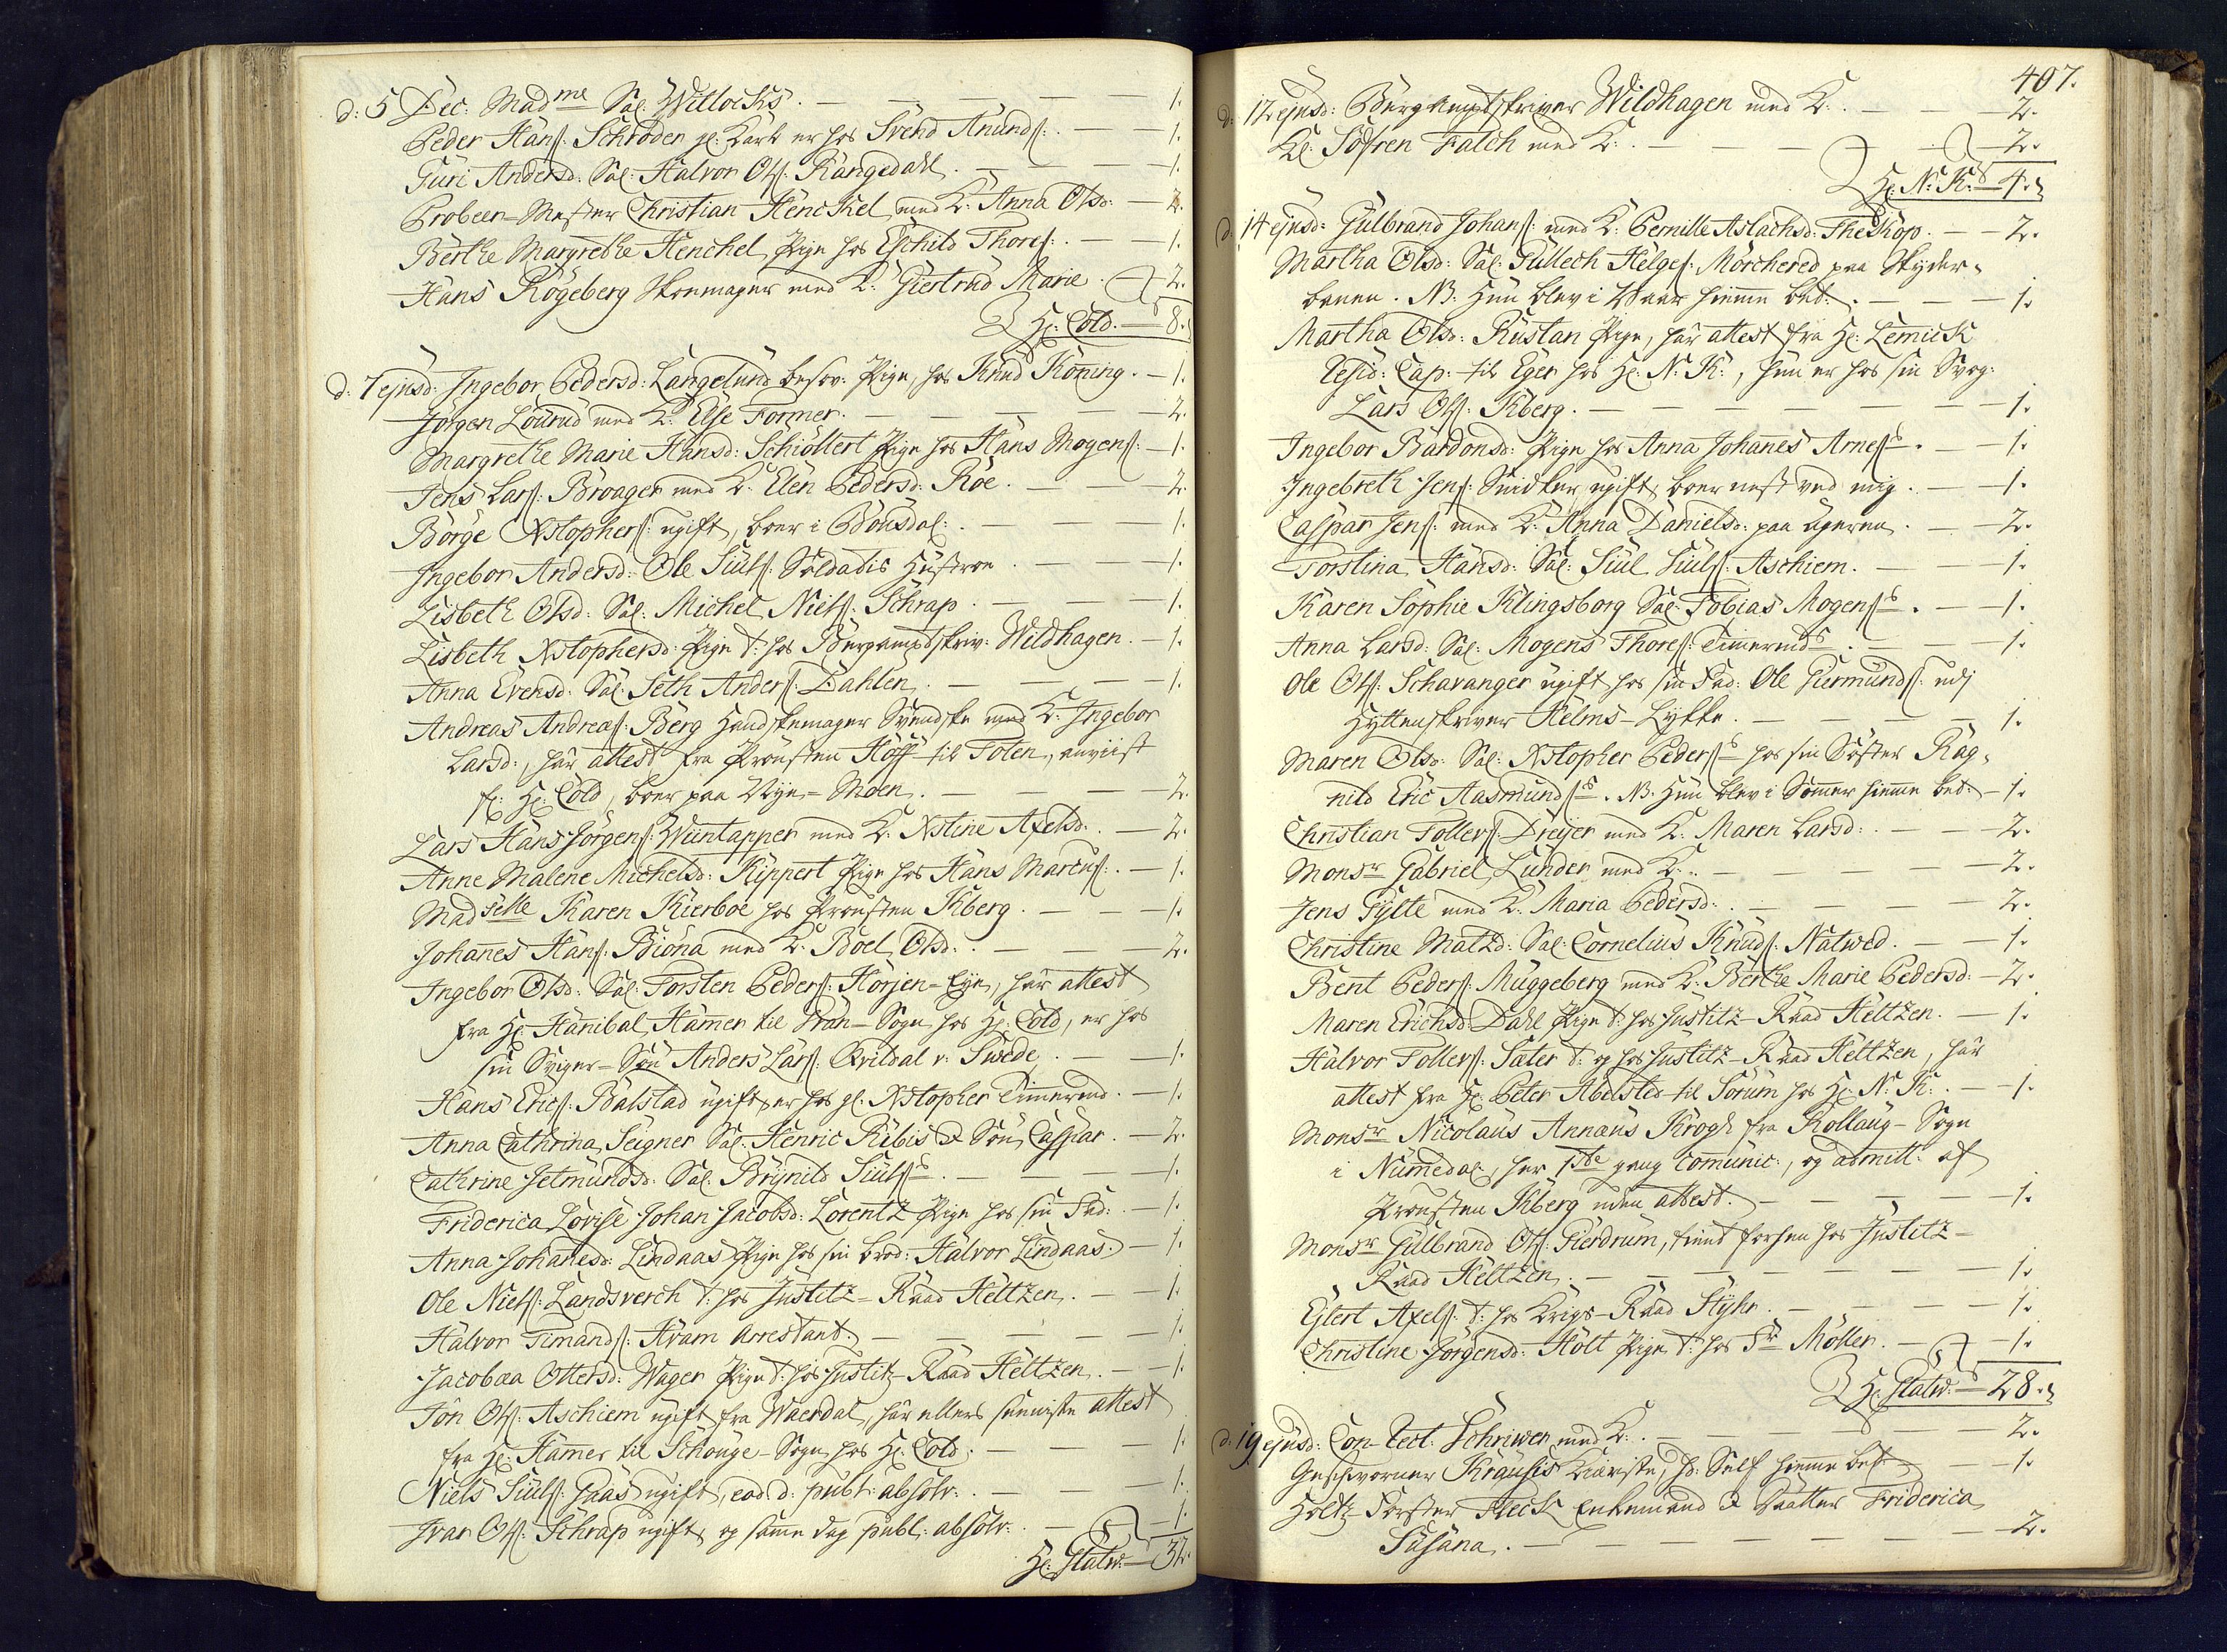 d: 5 Dec: Mad<sup>me</sup> Sal: Witlocks. — — — 1.
Peder Hanß: Schröder gl: Karl er hos Svend Anundß: — 1.
Guri Andersd: Sal: Halvor Olß: Kangedahl. — — 1.
Probeer-Mester Christian Henckel med K: Anna Olsd: — 2.
Berthe Margrethe Henchel Pige hos Eschild Thoreß: — 1.
Hans Rögeberg Skoemager med K: Giertrud Marie. 2.
Hr: Cold. — 8.
d: 7 ejusd: Ingebor Pedersd: Langelund besov: Pige, hos Knud Köning. — 1.
Jörgen Lourud med K: Else Former. — — 2.
Margrethe Marie Hansd: Schiöttert Pige hos Hans Mogenß: — 1.
Jens Larß: Broager med K: Elen Pedersd: Roe. — 2.
Börge Xstopherß: ugift, boer i Bonsdal: — — 1.
Ingebor Andersd: Ole Siulß: Soldatis Hustroe. — — 1.
Lisbeth Olsd: Sal: Michel Nielß: Schrap. — — 1.
Lisbeth Xstophersd: Pige t: hos Bergampdskriv: Wildhagen. — 1.
Anna Evensd: Sal: Seth Anderß: Dahlen. — — 1.
Andreas Andreaß: Berg Handskemager Svendske med K: Ingebor
Larsd:, har attest fra Provsten Hoff til Toten, anviist
fr: Hr: Cold, boer paa Nye-Moen. — — 2.
Lars Hans Jörgenß: Wiintapper med K: Xstine Axelsd: — 2.
Anne Malene Michelsd: Kippert Pige hos Hans Marcuß: — 1.
Mad<sup>selle</sup> Karen Kierboe hos Provsten Kberg. — — 1.
Johanes Hanß: Biona med K: Boel Olsd: — — 2.
Ingebor Olsd: Sal: Torsten Pederß: Horjen-Eye, har attest
fra Hr: Hanibal Hamer til Gran-Sogn hos Hr: Cold, er hos
sin Sviger-Søn Anders Larß: Qvildal v: Swede. — 1.
Hans Ericß: Balstad ugift, er hos gl: Xstopher Timermd: — 1.
Anna Cathrina Seigner Sal: Henric Ribis & Søn Caspar. — 2.
Cathrine Jetmundsd: Sal: Brynild Siulß<sup>s</sup>. — 1.
Friderica Lovise Johan Jacobsd: Lorentz Pige hos sin Fad: — 1.
Anna Johanesd: Lindaas Pige hos sin brod: Halvor Lindaas. — 1.
Ole Nielß: Landsverch t: hos Justitz-Raad Heltzen. — 1.
Halvor Timandß: Kram Arrestant. — — 1.
Jacobæa Ottersd: Wager Pige t: hos Justitz-Raad Heltzen. — 1.
Jon Olß: Aschiem ugift fra Waerdal, har ellers seeniste attest
fra Hr: Hamer til Schouge-Sogn hos Hr: Cold. — 1.
Niels Siulß: Gaas ugift, eod: d: publ: absolv: — 1.
Ivar Olß: Schrap ugift, og samme dag publ: absolv: — 1.
Hr: Statw: — 32.
407.
d: 12 ejusd: Bergamptskriver Wildhagen med K: — 2.
Kl: Søfren Falch med K: — — 2.
Hr: N: K: — 4.
d: 14 ejusd: Gulbrand Johanß: med K: Pernille Aslachsd: Theskop. — 2.
Martha Olsd: Sal: Gullech Helgeß: Mörchered paa Skyder-
banen. NB: Hun blev i Vaar hiemme bet: — 1.
Martha Olsd: Rustan Pige, har attest fra Hr: Lemick
Resid: Cap: til Eger hos Hr: N: K:, hun er hos sin Svog:
Lars Olß: Kberg. — — 1.
Ingebor Bardonsd: Pige hos Anna Johanes Arneß<sup>s</sup>. — 1.
Ingebreth Jenß: Snidker ugift, boer nest ved mig. — 1.
Caspar Jenß: med K: Anna Danielsd: paa Ageren. — 2.
Torstina Hansd: Sal: Siul Siulß: Aschiem. — 1.
Karen Sophie Klingsborg Sal: Tobias Mogenß<sup>s</sup>. — 1.
Anna Larsd: Sal: Mogens Thoreß: Timermds. — 1.
Ole Olß: Schavanger ugift hos sin Fad: Ole Giermundß: ved
Hytteskriver Helms-Lykke. — — 1.
Maren Olsd: Sal: Xstopher Pederß<sup>s</sup> hos sin Søster Rag-
nild Eric Aasmundß<sup>s</sup>. NB. Hun blev i Sommer hiemme bet: — 1.
Christian Tollerß: Dreyer med K: Maren Larsd: — 2.
Mons<sup>r</sup> Gabriel Lunder med K: — — 2.
Jens Gylte med K: Maria Pedersd: — — 2.
Christine Matzd: Sal: Cornelius Knudß: Natwed. — 1.
Bent Pederß: Muggeberg med K: Berthe Marie Pedersd: — 2.
Maren Erichsd: Dahl Pige t: hos Justitz-Raad Heltzen. — 1.
Halvor Tollerß: Sæter t: og hos Justitz-Raad Heltzen, har
attest fra Hr: Peter Abelsted til Sorum hos Hr: N: K: — 1.
Mons<sup>r</sup> Nicolaus Annæus Krogh fra Rollaug-Sogn
i Numedal, her 1<sup>ste</sup> gang comunic:, og admitt: af
Provsten Kberg uden attest. — — 1.
Mons<sup>r</sup> Gulbrand Olß: Gierdrum, tient forhen hos Justitz-
Raad Heltzen. — — 1.
Ejlert Axelß: t: hos Krigs-Raad Styhr. — 1.
Christine Jörgensd: Holt Pige t: hos Fr Möller. — 1.
Hr: Statw: — 28.
d: 19 ejusd: Con-Rect: Schriwer med K: — 2.
Geschvorner Krausis Kiæriste, H: Self hiemme bet: — 1.
Holtz-Førster Fleck Enkemand & Daatter Friderica
Susana. — — 2.